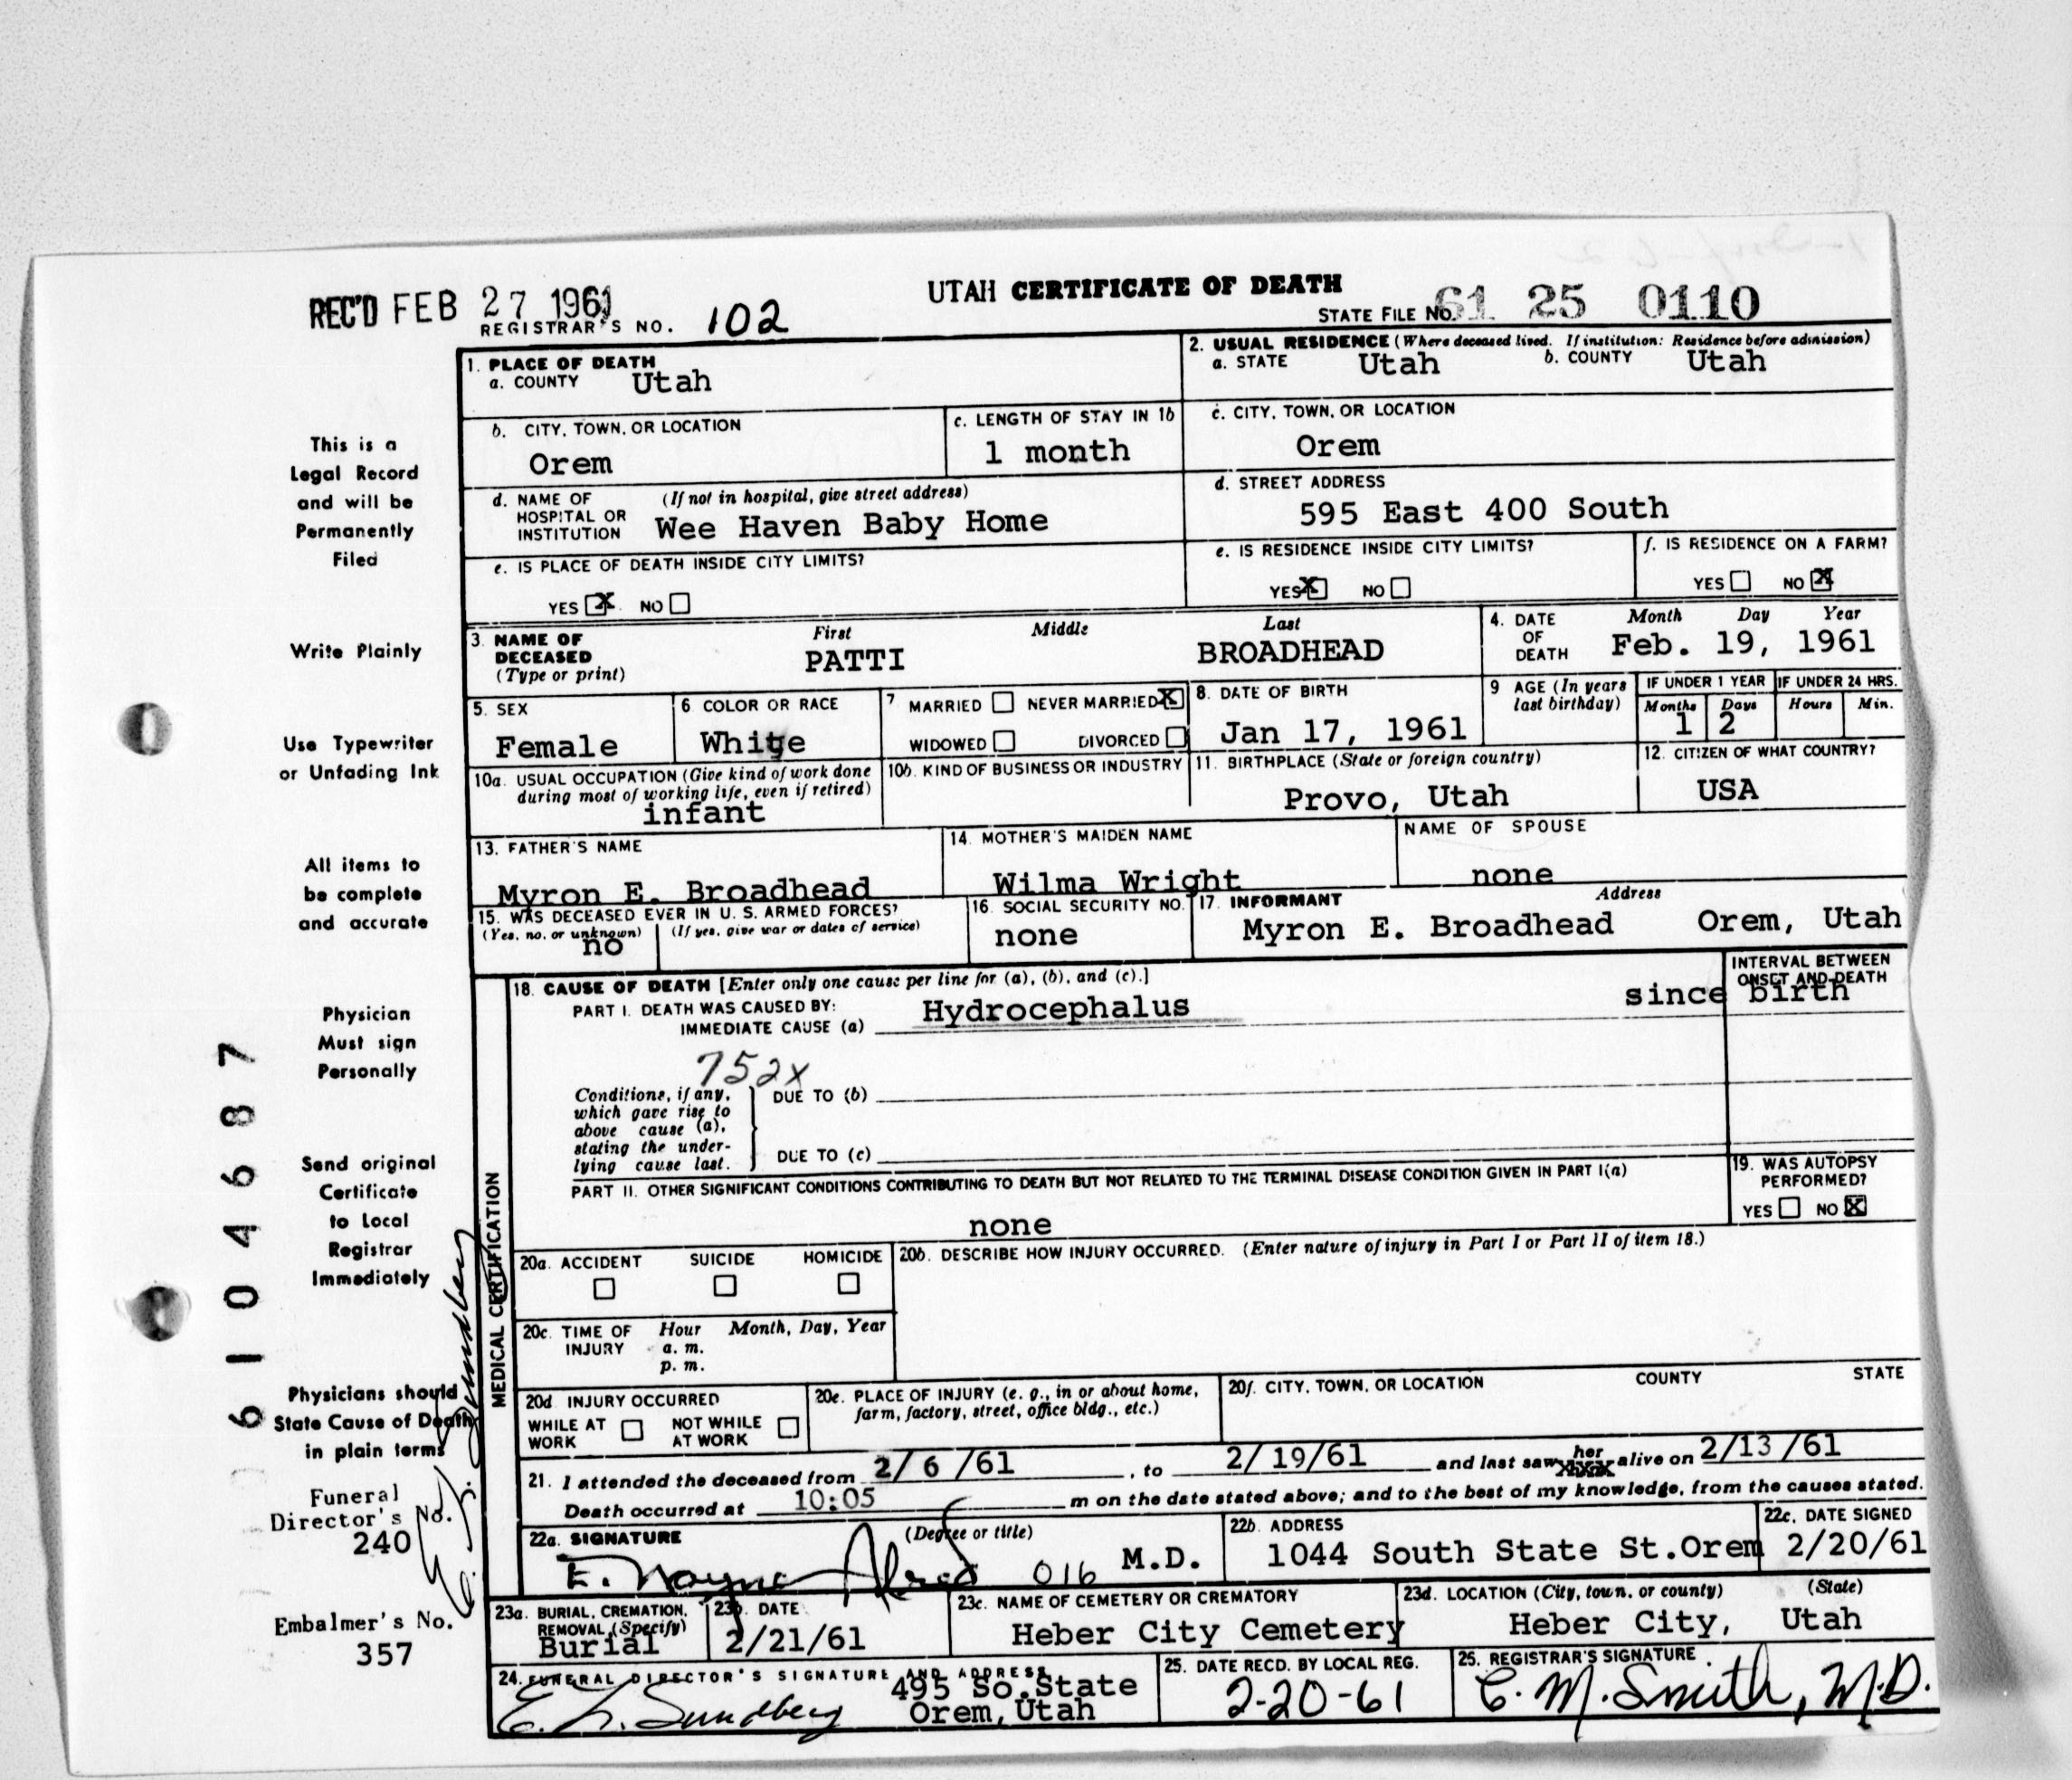 REC'D FEB 27 1961
UTAH CERTIFICATE OF DEATH
REGISTRAR'S NO. 102
STATE FILE No. 61 25 0110
1. PLACE OF DEATH
a. COUNTY Utah
2. USUAL RESIDENCE (Where deceased lived. If institution: Residence before admission)
a. STATE Utah b. COUNTY Utah
b. CITY, TOWN, OR LOCATION
Orem
c. LENGTH OF STAY IN 1b
1 month
c. CITY, TOWN, OR LOCATION
Orem
d. NAME OF HOSPITAL OR INSTITUTION (If not in hospital, give street address)
Wee Haven Baby Home
d. STREET ADDRESS
595 East 400 South
e. IS PLACE OF DEATH INSIDE CITY LIMITS?
YES X NO
e. IS RESIDENCE INSIDE CITY LIMITS?
YES X NO
f. IS RESIDENCE ON A FARM?
YES NO X
3. NAME OF DECEASED (Type or print)
First Middle Last
PATTI BROADHEAD
4. DATE OF DEATH Month Day Year
Feb. 19, 1961
5. SEX
Female
6 COLOR OR RACE
White
7 MARRIED NEVER MARRIED X
WIDOWED DIVORCED
8. DATE OF BIRTH
Jan 17, 1961
9 AGE (In years last birthday)
IF UNDER 1 YEAR IF UNDER 24 HRS.
Months Days Hours Min.
1 2
10a. USUAL OCCUPATION (Give kind of work done during most of working life, even if retired)
infant
10b. KIND OF BUSINESS OR INDUSTRY
11. BIRTHPLACE (State or foreign country)
Provo, Utah
12. CITIZEN OF WHAT COUNTRY?
USA
13. FATHER'S NAME
Myron E. Broadhead
14. MOTHER'S MAIDEN NAME
Wilma Wright
NAME OF SPOUSE
none
15. WAS DECEASED EVER IN U. S. ARMED FORCES?
(Yes, no, or unknown) (If yes, give war or dates of service)
no
16. SOCIAL SECURITY NO.
none
17. INFORMANT Address
Myron E. Broadhead Orem, Utah
18. CAUSE OF DEATH [Enter only one cause per line for (a), (b), and (c).]
INTERVAL BETWEEN ONSET AND DEATH
PART I. DEATH WAS CAUSED BY:
IMMEDIATE CAUSE (a) Hydrocephalus since birth
752x
Conditions, if any, which gave rise to above cause (a), stating the underlying cause last.
DUE TO (b)
DUE TO (c)
PART II. OTHER SIGNIFICANT CONDITIONS CONTRIBUTING TO DEATH BUT NOT RELATED TO THE TERMINAL DISEASE CONDITION GIVEN IN PART I(a)
none
19. WAS AUTOPSY PERFORMED?
YES NO X
20a. ACCIDENT SUICIDE HOMICIDE
20b. DESCRIBE HOW INJURY OCCURRED. (Enter nature of injury in Part I or Part II of item 18.)
20c. TIME OF INJURY Hour Month, Day, Year
a. m.
p. m.
20d INJURY OCCURRED
WHILE AT WORK NOT WHILE AT WORK
20e. PLACE OF INJURY (e. g., in or about home, farm, factory, street, office bldg., etc.)
20f. CITY, TOWN, OR LOCATION COUNTY STATE
21. I attended the deceased from 2/ 6 /61, to 2/ 19/61 and last saw her alive on 2/13 /61
Death occurred at 10:05 m on the date stated above; and to the best of my knowledge, from the causes stated.
22a. SIGNATURE (Degree or title)
E. Wayne Alred 016 M.D.
22b. ADDRESS
1044 South State St.Orem
22c. DATE SIGNED
2/20/61
23a. BURIAL, CREMATION, REMOVAL (Specify)
Burial
23b. DATE
2/21/61
23c. NAME OF CEMETERY OR CREMATORY
Heber City Cemetery
23d. LOCATION (City, town, or county) (State)
Heber City, Utah
24. FUNERAL DIRECTOR'S SIGNATURE AND ADDRESS
E. L. Sundberg 495 So.State
Orem,Utah
25. DATE RECD. BY LOCAL REG.
2-20-61
25. REGISTRAR'S SIGNATURE
C. M. Smith, M.D.
MEDICAL CERTIFICATION
This is a
Legal Record
and will be
Permanently
Filed
Write Plainly
Use Typewriter
or Unfading Ink
All items to
be complete
and accurate
Physician
Must sign
Personally
Send original
Certificate
to Local
Registrar
Immediately
Physicians should
State Cause of Death
in plain terms
Funeral
Director's No.
240
Embalmer's No.
357
E. L. Sundberg
6104687